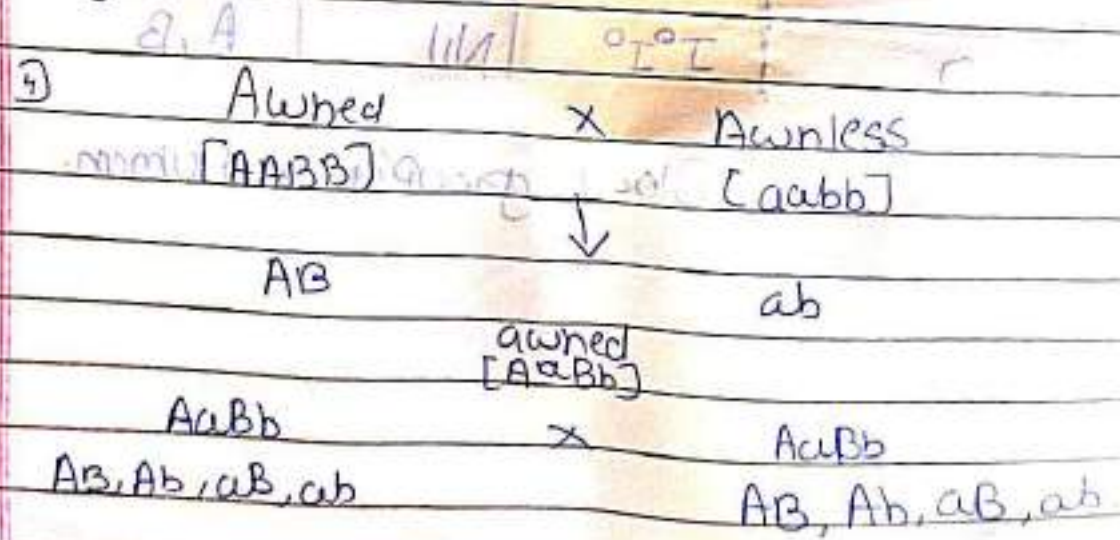 4) Awned × Awnless
[AABB] [aabb]
↓
AB ab
awned
[AaBb]
AaBb × AaBb
AB, Ab, aB, ab AB, Ab, aB, ab